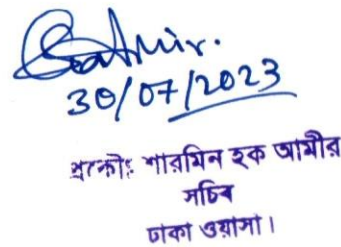 30/07/2023
প্রকৌঃ শারমিন হক আমীর
সচিব
ঢাকা ওয়াসা।